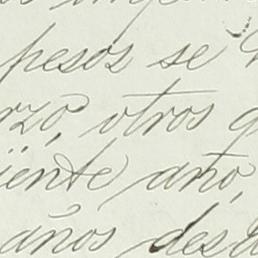 pesos se
rzo, otros
iente año,
años desd